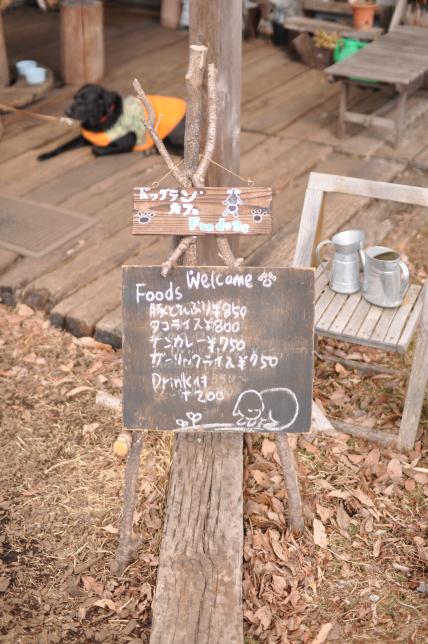 ドッグラン
カフェ
Fun dogs
Welcome
Foods
豚どんぶり¥850
タコライス¥800
チキンカレー¥750
ガーリックライス¥750
Drink付
¥200